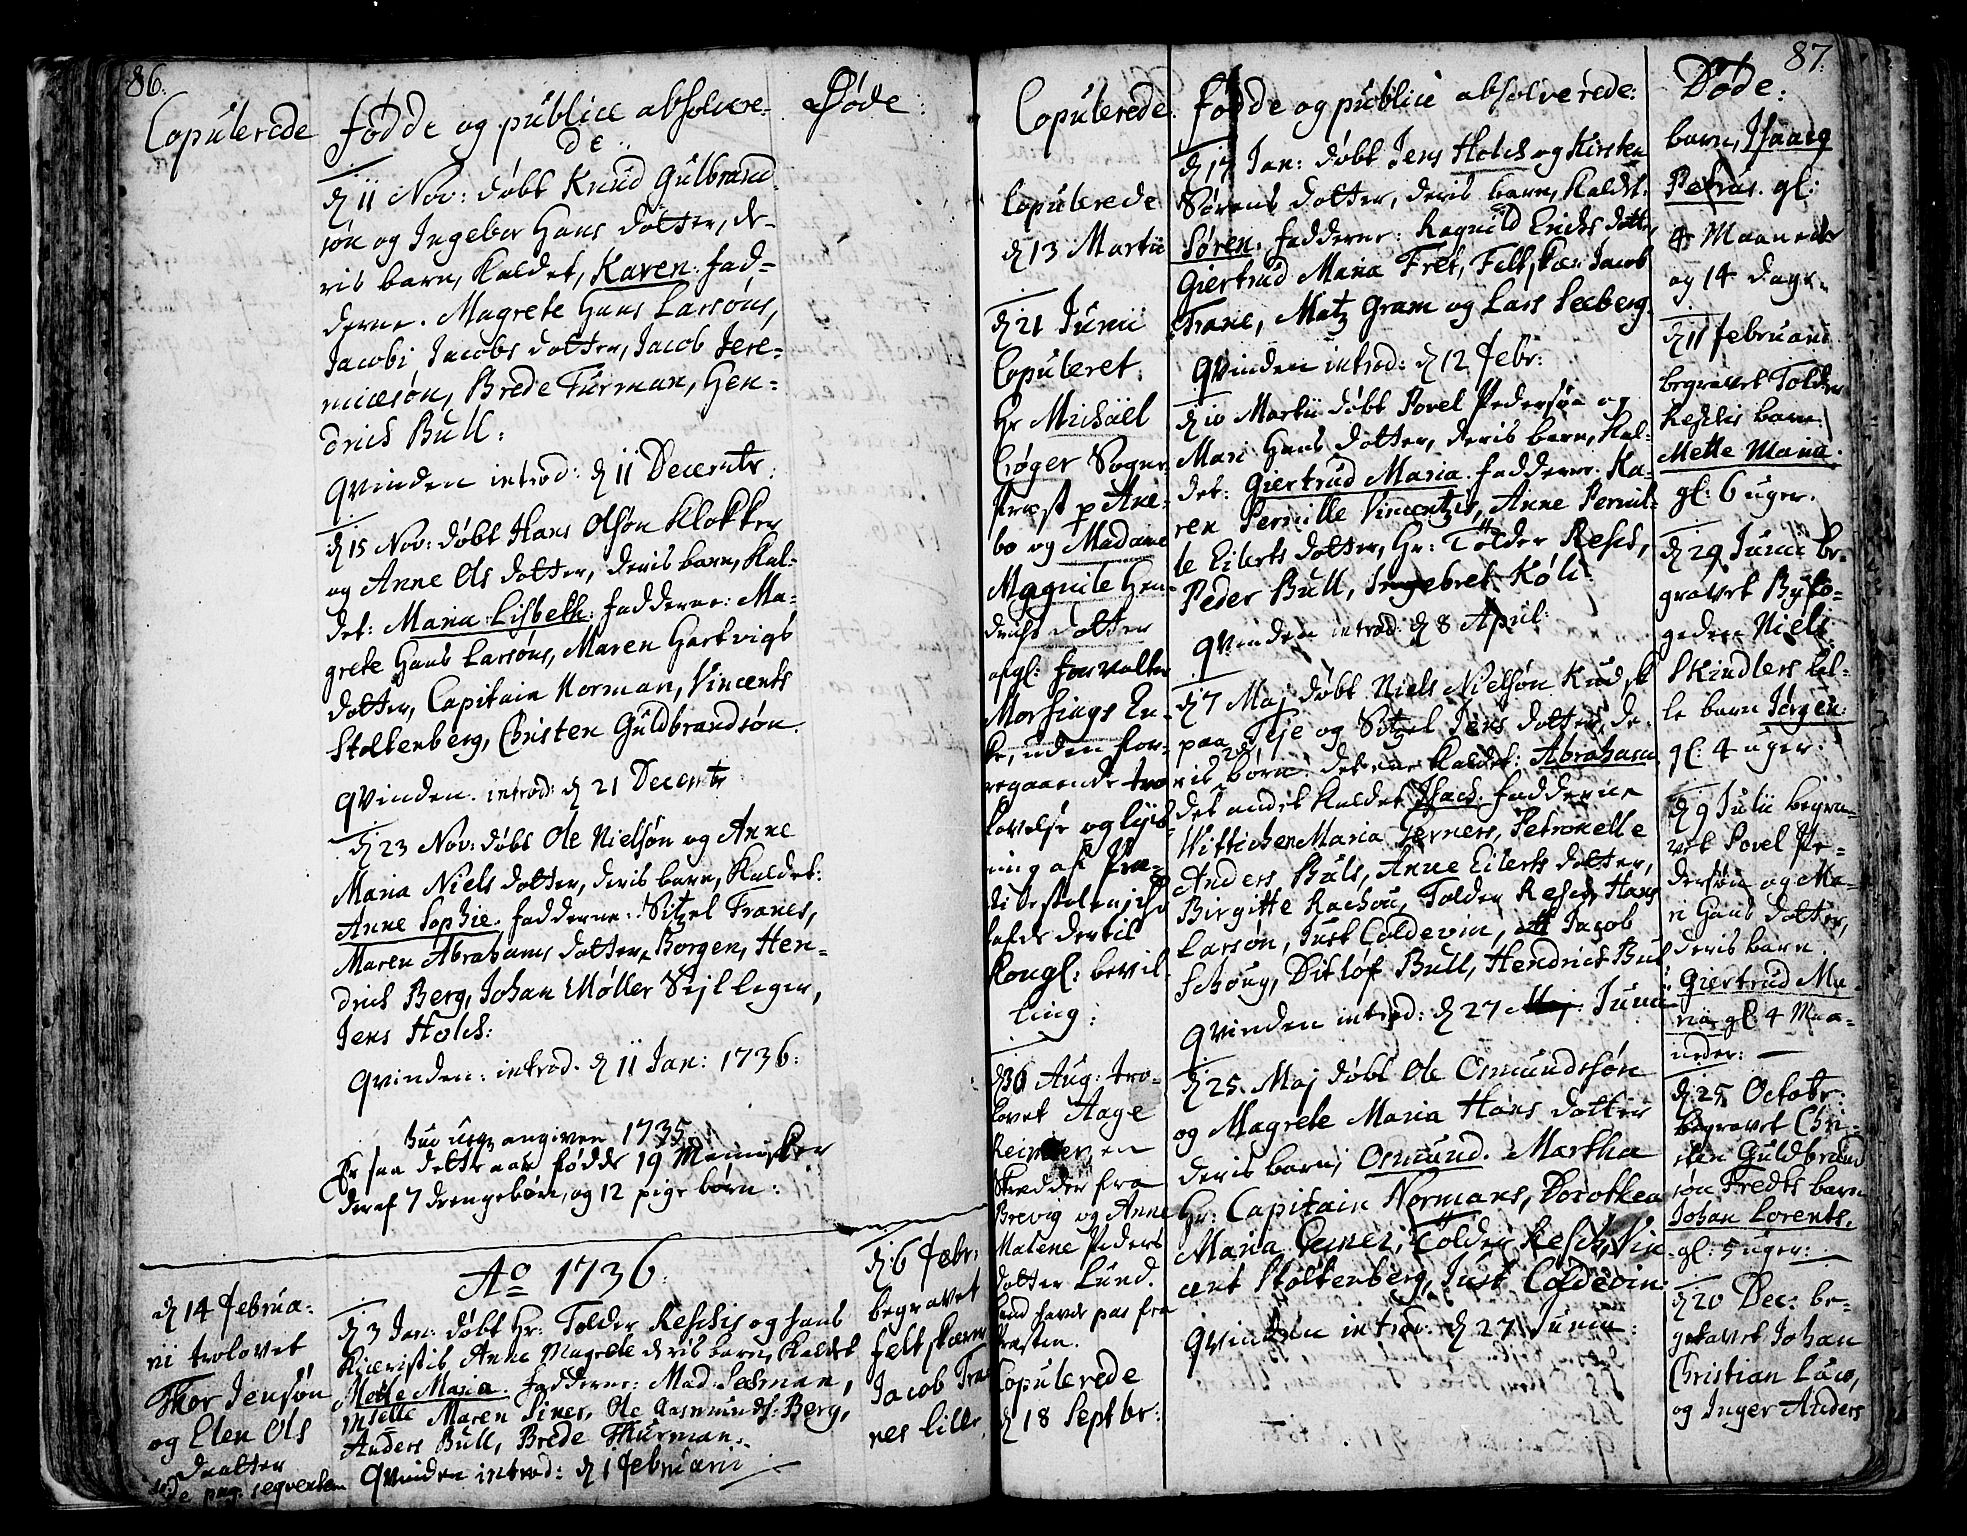 86.
Copulerede
d 14 Februa-
rii trolovet
Thor Jensøn
og Elen Ols
Daatter
vide pag. seqventem
Fødde og publice absolvere-
de:
d 11 Nov: døbt Knud Gulbrand
søn og Ingebor Hans dotter, de-
ris barn, kaldet, Karen. fad-
derne. Magrete Hans Larsøns,
Jacobi Jacobs dotter, Jacob Jere-
miæsøn, Brede Furman, Hen-
drich Bull:
Qvinden introd: d 11 Decembr:
d 15 Nov: døbt Hans Olsøn Klokker
og Anne Ols dotter, deris barn, kal-
det: Maria Lisbeth: fadderne: Ma-
grete Hans Larsøns, Maren Hartvigs
dotter, Capitain Norman, Vincents
Stoltenberg, Christen Guldbrandsøn.
Qvinden. introd: d 21 Decembr
d 23 Nov: døbt Ole Nielsøn og Anne
Maria Niels dotter, deris barn, kaldet:
Anne Sophie. fadderne: Sitzel Tranes,
Maren Abrahams dotter, Borgen, Hen-
drich Berg, Johan Møller Sejlleger,
Jens Holch:
Qvinden: introd. d 11 Jan: 1736:
angiven 1735
Er saa dette aar fødde 19 Mennisker
deraf 7 drengebørn, og 12 pige børn:
Ao 1736.
d 3 Jan: døbt Hr: Tolder Reschis og hans
Kiæristis Anne Magrete deris barn, kaldet
Mette Maria. fadderne: Mad: Leesman,
Mselle Maren Piner, Ole Aasmunds: Berg,
Anders Bull, Brede Thurman.
Qvinden introd: d 1 Februarii
Døde:
d: 6 Febr:
begravet
feltskærer
Jacob Tra-
nes lille
87.
Copulerede
Copulerede
d 13 Martii
d 21 Junii
Copuleret
Hr Michäel
Crøger Sogne
præst p Ane-
bo og Madame
Magnile Hen-
drichs dotter
afgl: Forvalter
Morsings En-
ke, uden for-
regaaende tro-
lovelse og lys-
ning af Præ-
dikestolen, efter
Kongl: bevil-
ling:
d 6 Aug: tro-
lovet Aage
en
Skrædder fra
Brevig og Anne
Malene Peders
dotter Lund.
hand havde pas fra
Præsten.
Copulerede
d 18 Septbr:
Fødde og publice absolverede:
d 17 Jan: døbt Jens Holch og Kirsten
Sørens dotter, deris barn, kaldet
Søren. fadderne: Ragnild Erichs dotter,
Giertrud Maria Fret, Feltskær Jacob
Trane, Matz Gram og Lars Seeberg
Qvinden introd: d 12 Febr:
d 10 Martii døbt Povel Pedersøn og
Mari Hans dotter, deris barn, kal-
det: Giertrud Maria. fadderne. Ka-
ren Pernille Vincentzis, Anne Pernil-
le Eilerts dotter, Hr: Tolder Resch,
Peder Bull, Ingebret Køli
Qvinden introd: d 8 April:
d 7 Maj døbt Niels Nielsøn Kudsk
paa Teje og Sitzel Jens dotter, de-
ris børn: det ene kaldet: Abraham
det andet kaldet Isach: fadderne
Wittichen Maria Jerners, Petronelle
Anders Buls, Anne Eilerts dotter,
Birgitte Rachou, Tolder Resch, Hans
Larsøn, Just Coldevin, Jacob
Schoug, Ditløf Bull, Hendrich Bul
Qvinden introd: d 27 Maj: Junii
d 25. Maj døbt Ole Osmundsøn
og Magrete Maria Hans dotter
deris barn, Osmund. Martha
Hr: Capitain Normans, Dorothea
Maria Tolder Resch, Vin-
cent Stoltenberg, Just Coldevin.
Qvinden introd: d 27 Junii:
Døde:
barn, Isaacq
Petrus. gl:
4 Maaneder
og 14 dage.
d 11 Februarii
begravet Tolder
Reschis barn
Mette Maria.
gl: 6 uger.
d 29 Junii be-
gravet Byfo-
geden Niels
Skindlers lil-
le barn Jørgen:
gl: 4 uger:
d 9 Julii begra-
vet Povel Pe-
dersøn og Ma-
ri Hans dotter,
deris barn
Giertrud Ma-
ria gl: 4 Maa-
neder:
d: 25 Octobr:
begravet Chri-
sten Guldbrand
søn Tredts barn
Johan Lorents.
gl: 5 uger:
d 20 Dec: be-
gravet Johan
Christian Luco,
og Inger Anders